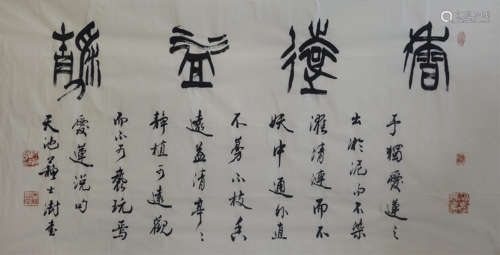 香遠益靜
予獨愛蓮之
出於泥而不染
濯清漣而不
妖中通外直
不蔓不枝香
遠益清亭々
靜植可遠觀
而不可褻玩焉
愛蓮説句
天池蘇士澍書